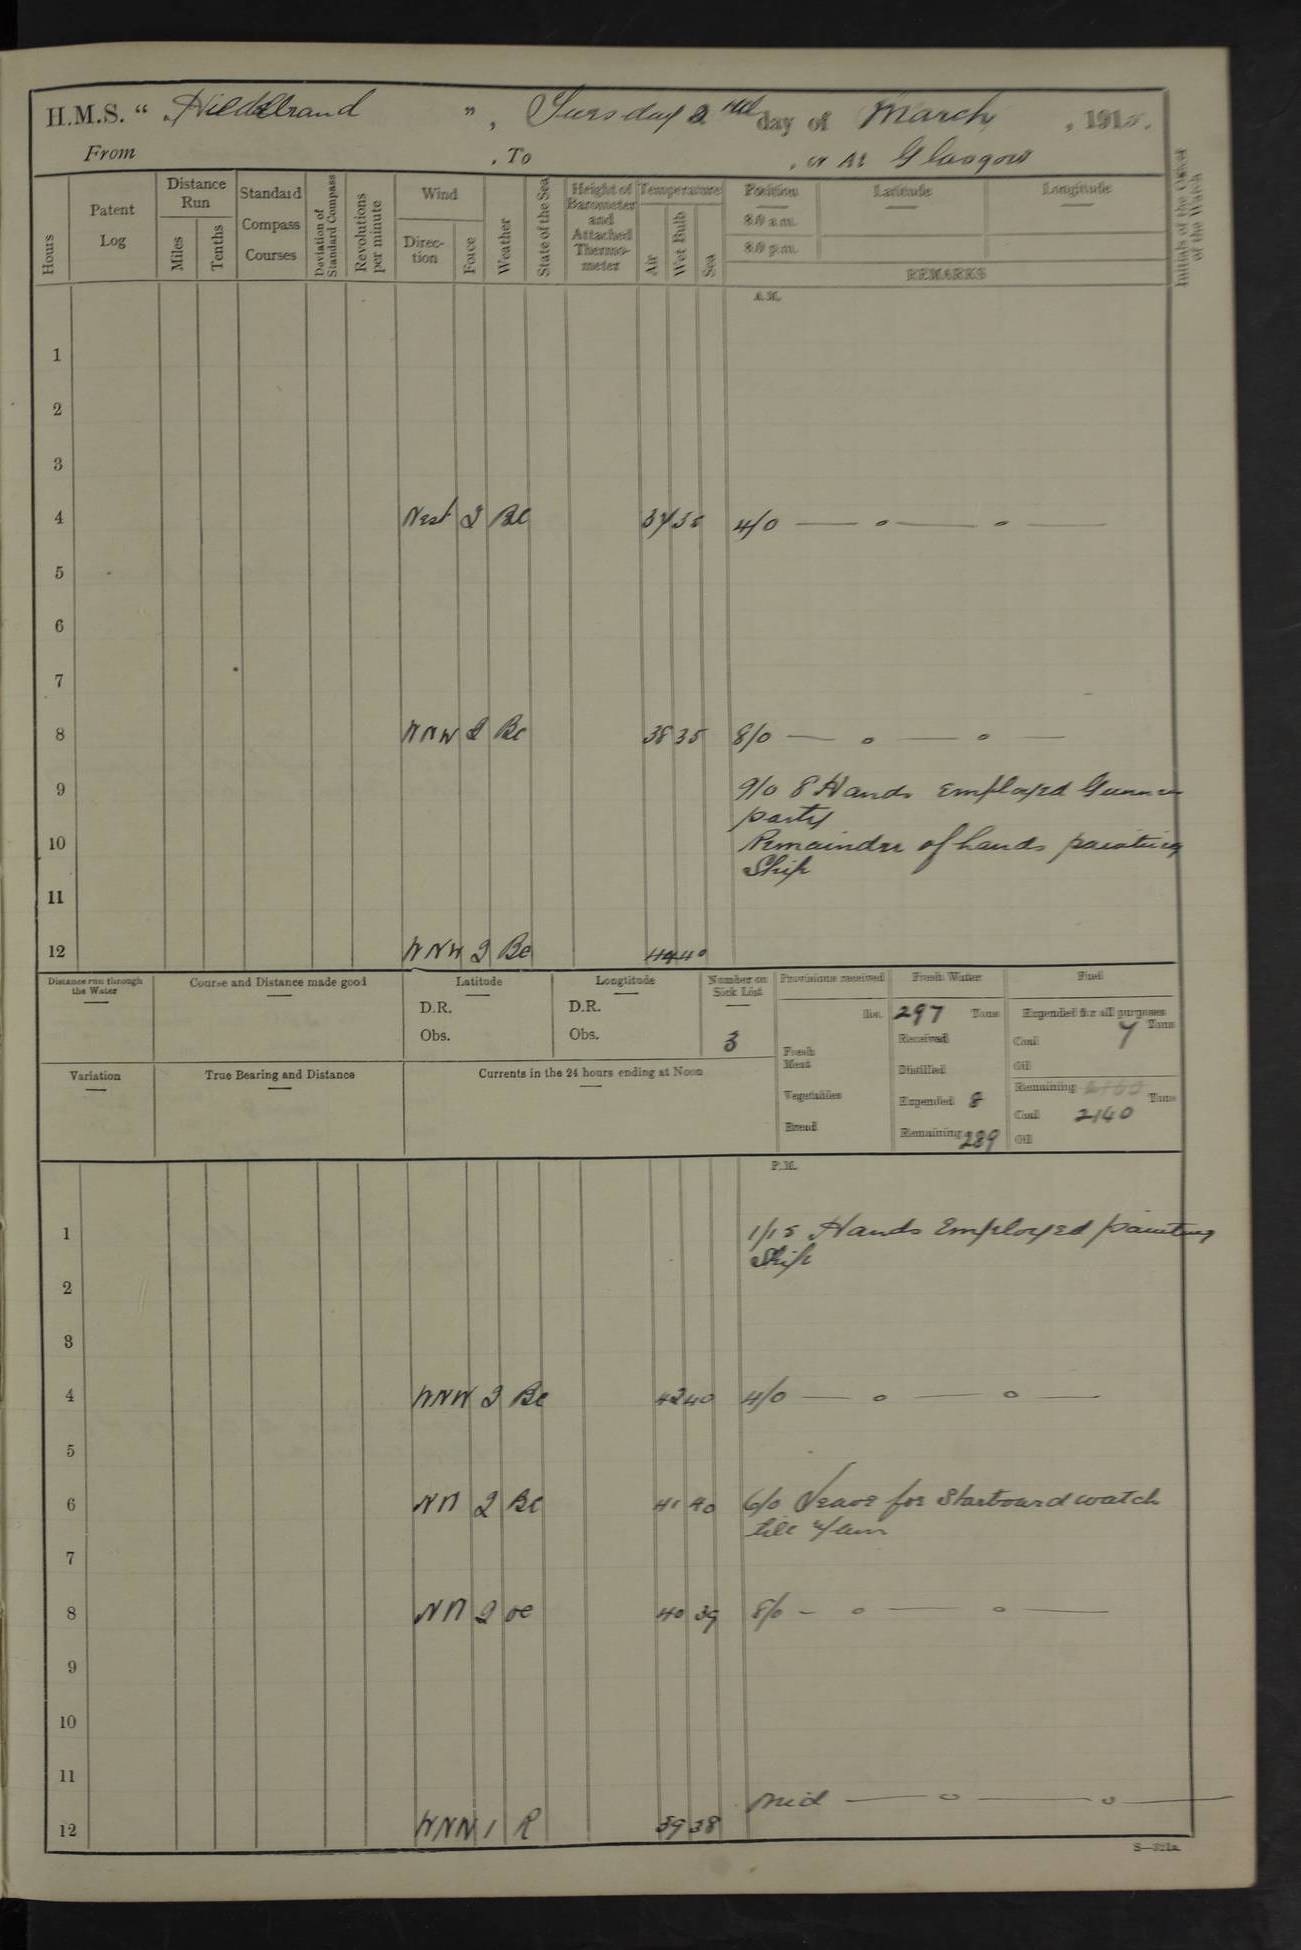 H.M.S. " Hildebrand ", Tuesday 2nd day of March, 1915.
From , To , or At Glasgow
Hours
Patent Log
Distance Run
Miles
Tenths
Standard Compass Courses
Deviation of Standard Compass
Revolutions per minute
Wind
Direction
Force
Weather
State of the Sea
Height of Barometer and Attached Thermometer
Temperature
Air
Wet Bulb
Sea
Position
8.0 a.m.
8.0 p.m.
Latitude
Longitude
REMARKS
Initials of the Officer of the Watch
A.M.
1
2
3
4 West 2 Bc 37 35 4/0 — o — o —
5
6
7
8 WNW 2 Bc 38 35 8/0 — o — o —
9 9/0 8 Hands Employed Gunner
party
10 Remainder of hands painting
Ship
11
12 WNW 2 Bc 44 40
Distance run through the Water
Course and Distance made good
Latitude
D.R.
Obs.
Longtitude
D.R.
Obs.
Number on Sick List
3
Provisions received
lbs.
Fresh Meat
Vegetables
Bread
Fresh Water
297 Tons
Received
Distilled
Expended 8
Remaining 289
Fuel
Expended for all purposes
Coal 7 Tons
Oil
Remaining
Tons
Coal 2140
Oil
Variation
True Bearing and Distance
Currents in the 24 hours ending at Noon
P.M.
1 1/15 Hands Employed painting
Ship
2
3
4 WNW 2 Bc 42 40 4/0 — o — o —
5
6 2 Bc 41 40 6/0 Leave for Starboard watch
till 7/am
7
8 2 oc 40 39 8/0 — o — o —
9
10
11
Mid — o — o —
12 WNW 1 R 39 38
S—321a.